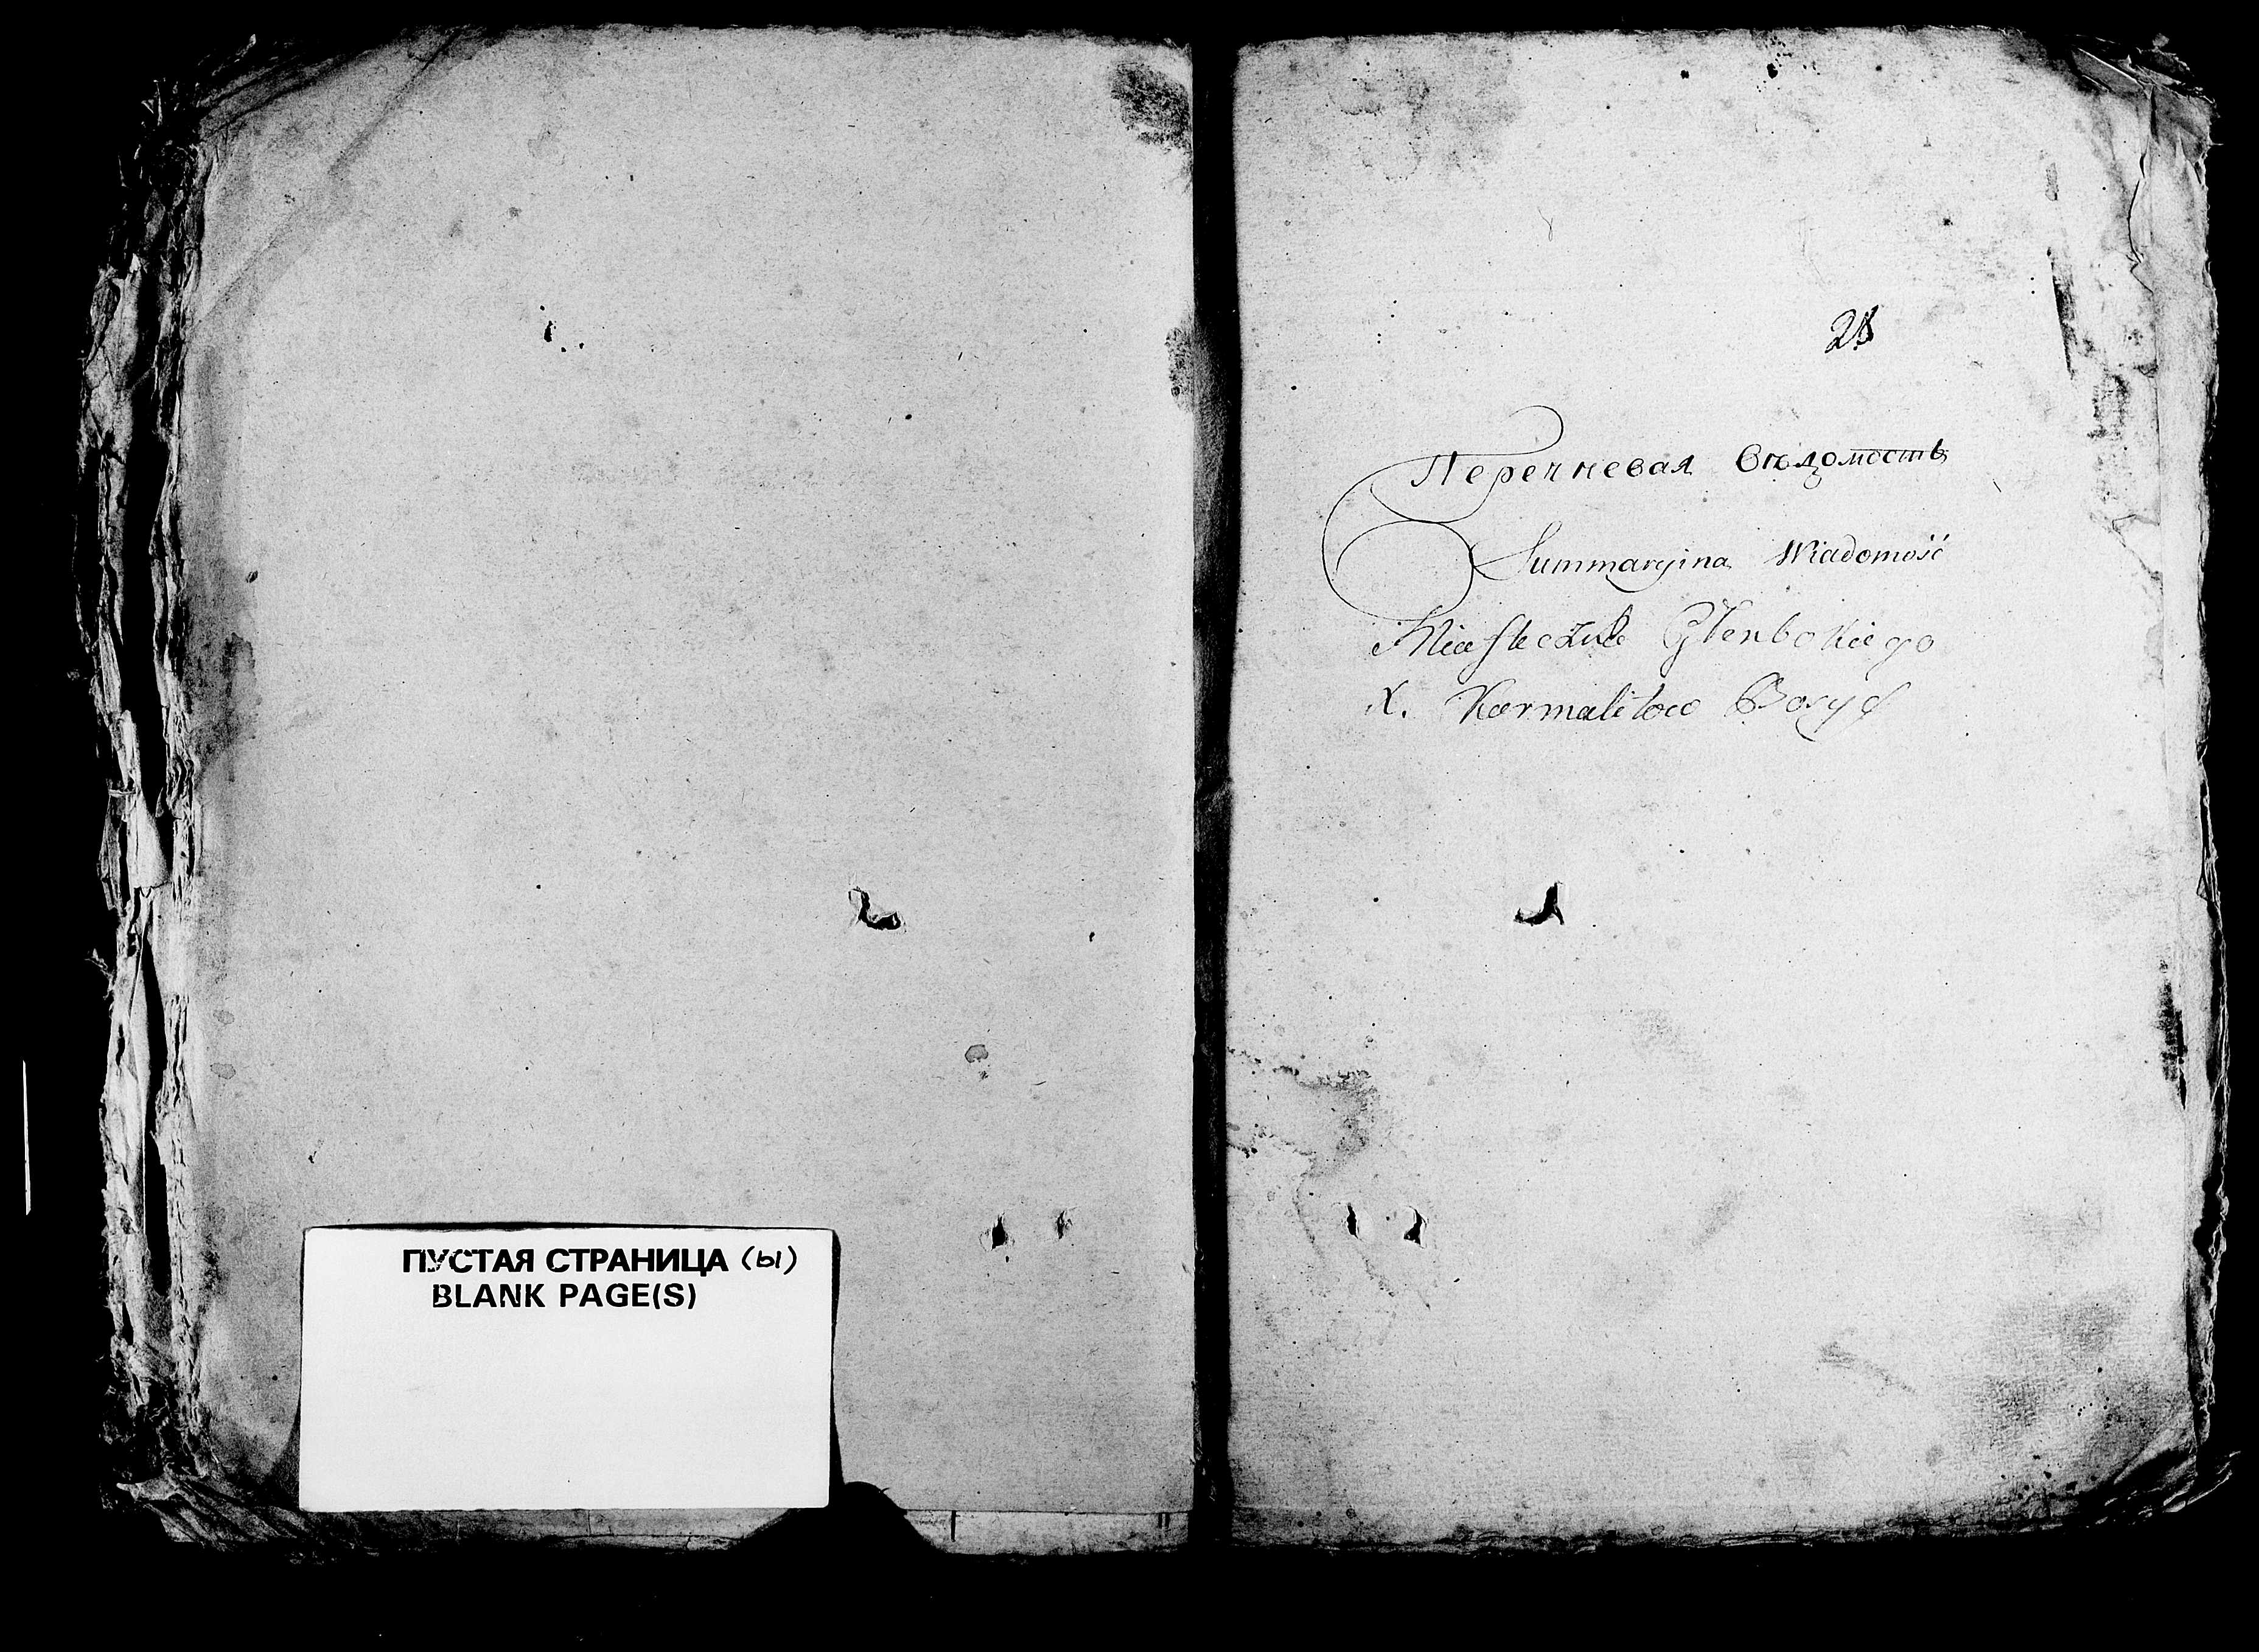 ПУСТАЯ СТРАНИЦА (ы)
BLANK PAGE(S)
Перечневая вѣдомость
Summaryina Wiadomość
Miasteczka Glenbokiego
X. Karmelitow Bosych